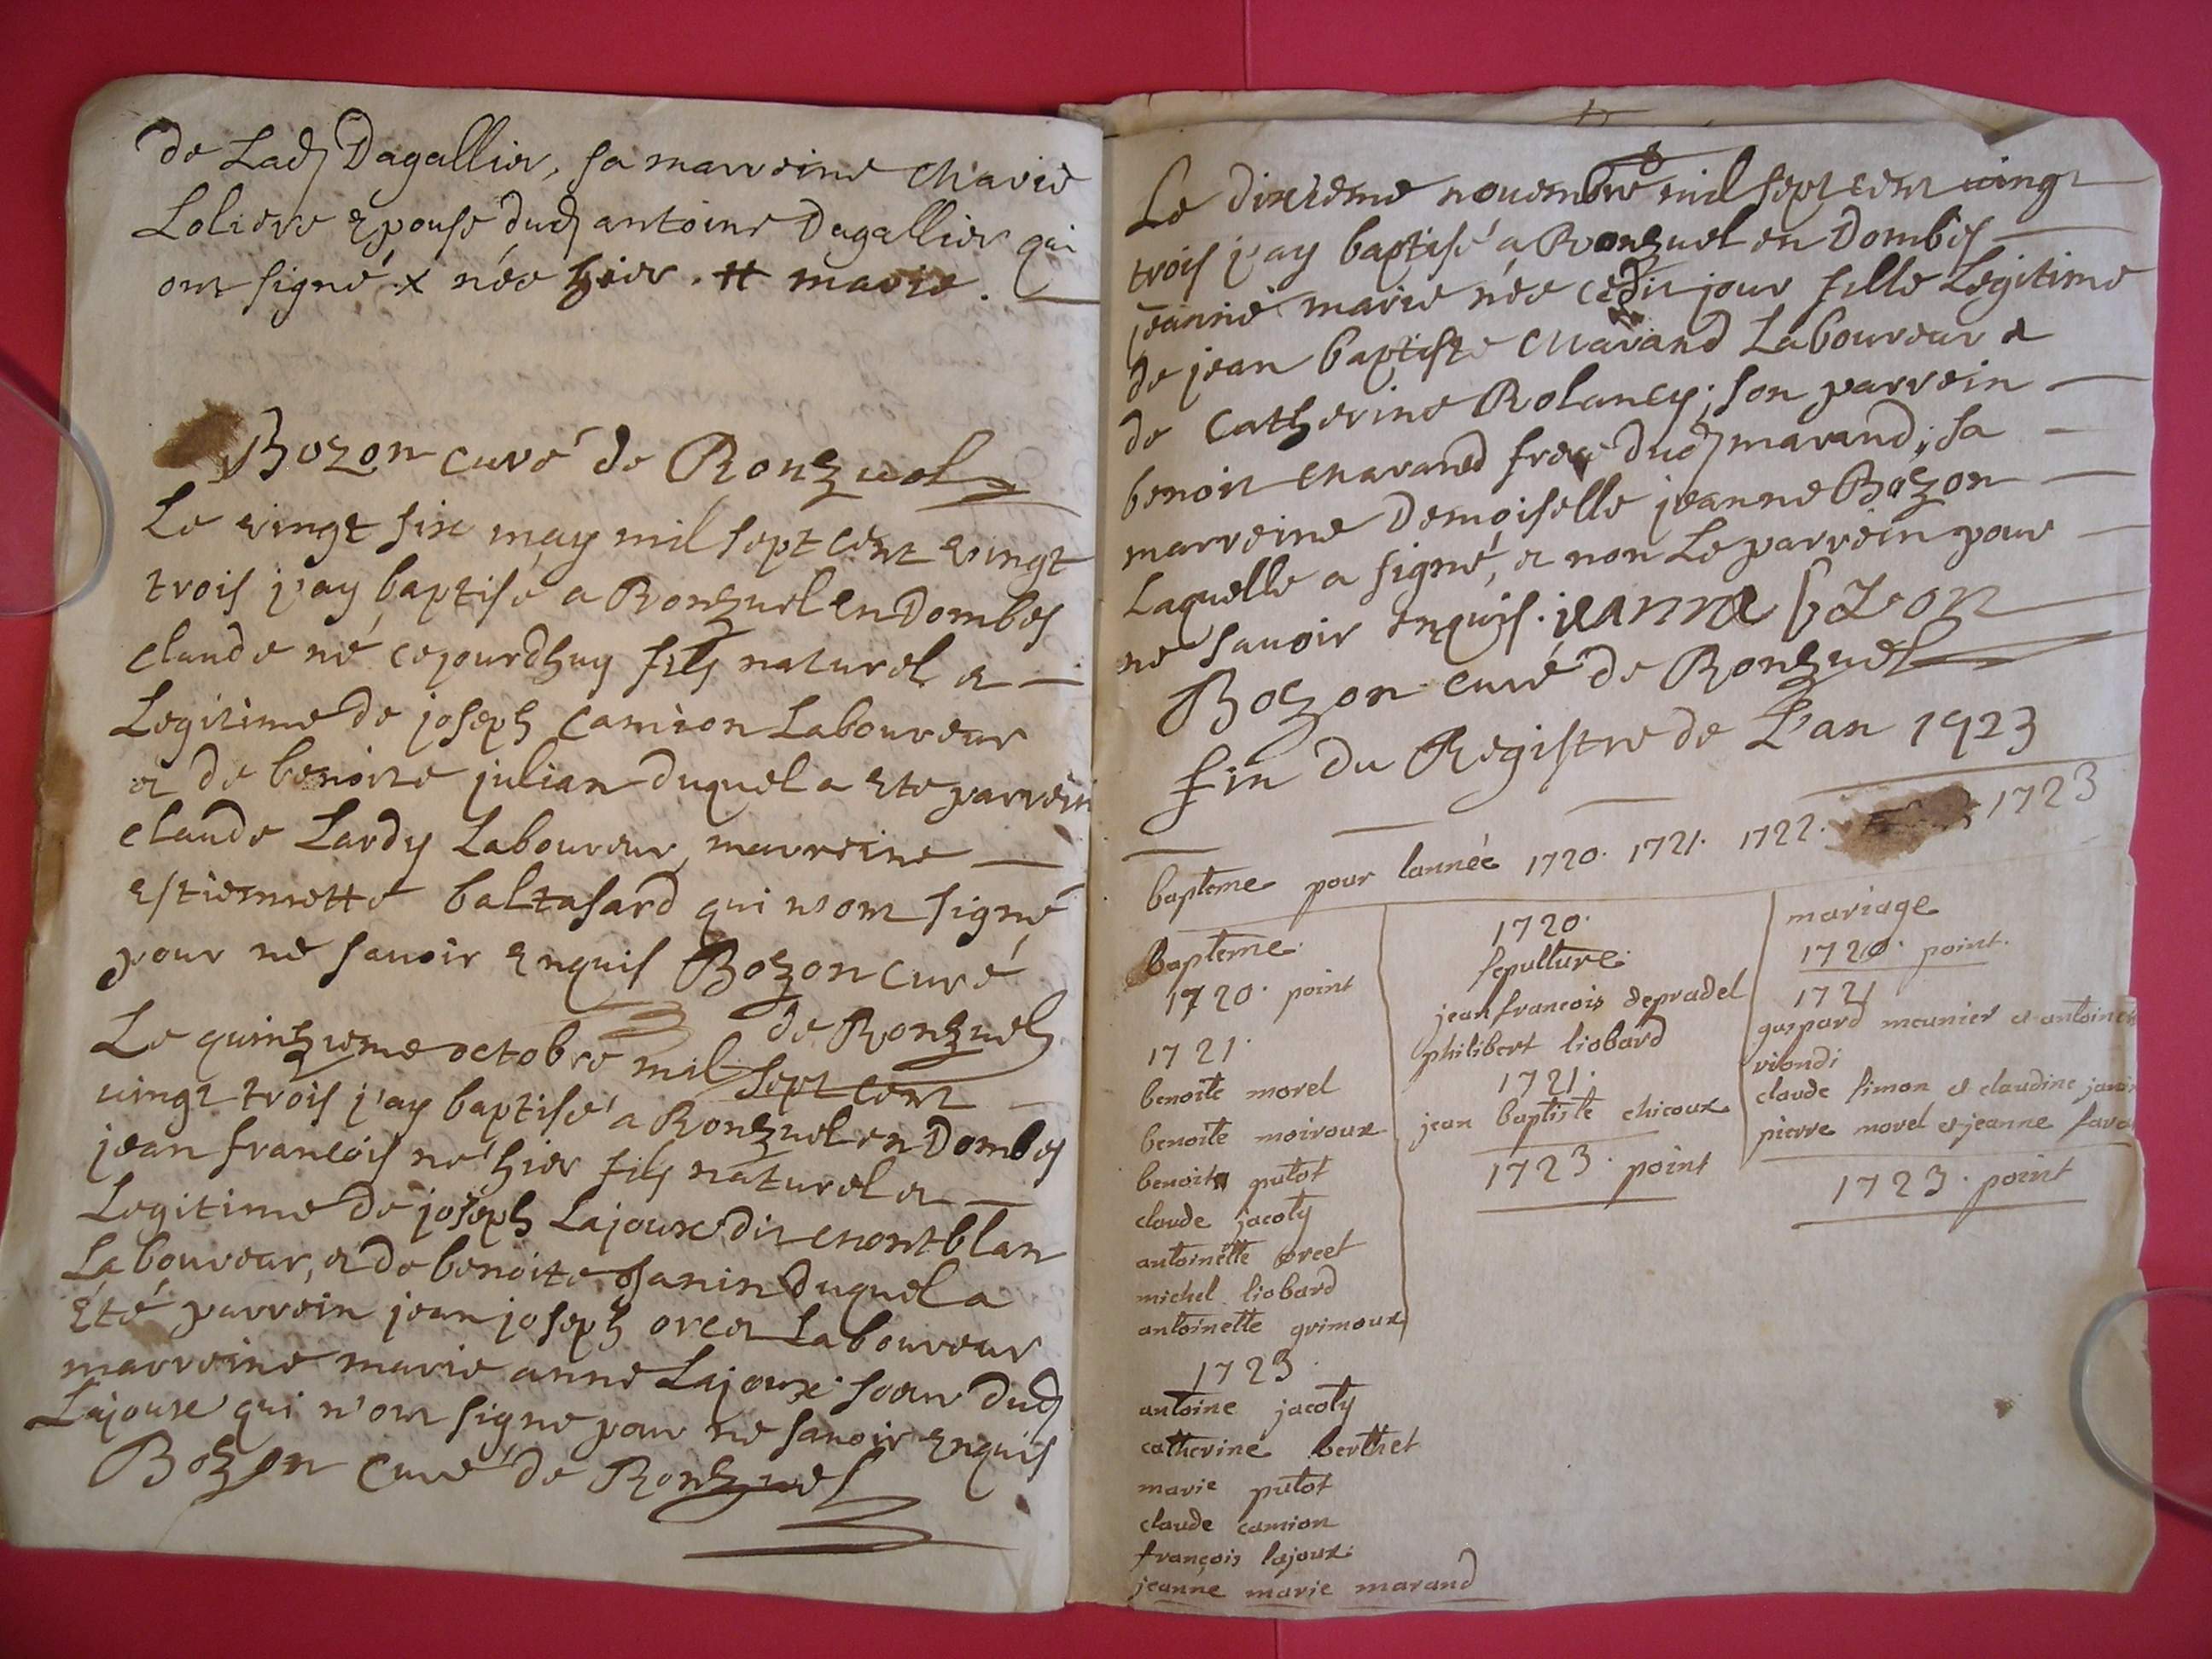 de Lad Dagallier, sa marreine Marie
Loliere epouse dud antoine Dagallier qui
ont signé x née hier . # marie .
Bozon curé de Ronzuel
Le vingt six may mil sept cent vingt
trois j'ay baptisé a Ronzuel en Dombes
claude né cejourdhuy fils naturel et
Legitime de joseph Camion Laboureur
et de benoite julian duquel a ete parrein
claude Lardy Laboureur, marreine
estiennette baltasard qui n'ont signé
pour ne savoir enquis Bozon curé
de Ronzuel
Le quinzieme octobre mil sept cent
vingt trois j'ay baptisé a Ronzuel en Dombes
jean francois né hier fils naturel et
Legitime de joseph Lajoux dit montblan
Laboureur, et de benoite Janin duquel a
été parrein jean joseph orcet Laboureur
marreine marie anne Lajoux soeur dud
Lajoux qui n'ont signe pour ne savoir enquis
Bozon curé de Ronzuel
Le dixieme novembre mil sept cent vingt
trois j'ay baptisé a Ronzuel en Dombes
jeanne marie née cedit jour fille Legitime
de jean baptiste Marand Laboureur et
de Catherine Rolancy ; son parrein
benoit Marand frere dud marand ; sa
marreine Demoiselle jeanne Bozon
Laquelle a signé, et non Le parrein pour
ne savoir enquis . jeanne bozon
Bozon curé de Ronzuel
fin du Registre de L'an 1723
bapteme pour lannée 1720. 1721. 1722. 1723
bapteme
1720. point
1721.
benoite morel
benoite moiroux
benoit putot
claude jacoty
antoinette orcet
michel liobard
antoinette grimoux
1723.
antoine jacoty
catherine berthet
marie putot
claude camion
françois lajoux
jeanne marie marand
1720.
sepulture
jean francois depradel
philibert liobard
1721.
jean baptiste chicoux
1723. point
mariage
1720. point.
1721
gaspard meunier et antoinette
viondi
claude simon et claudine janin
pierre morel et jeanne
1723. point